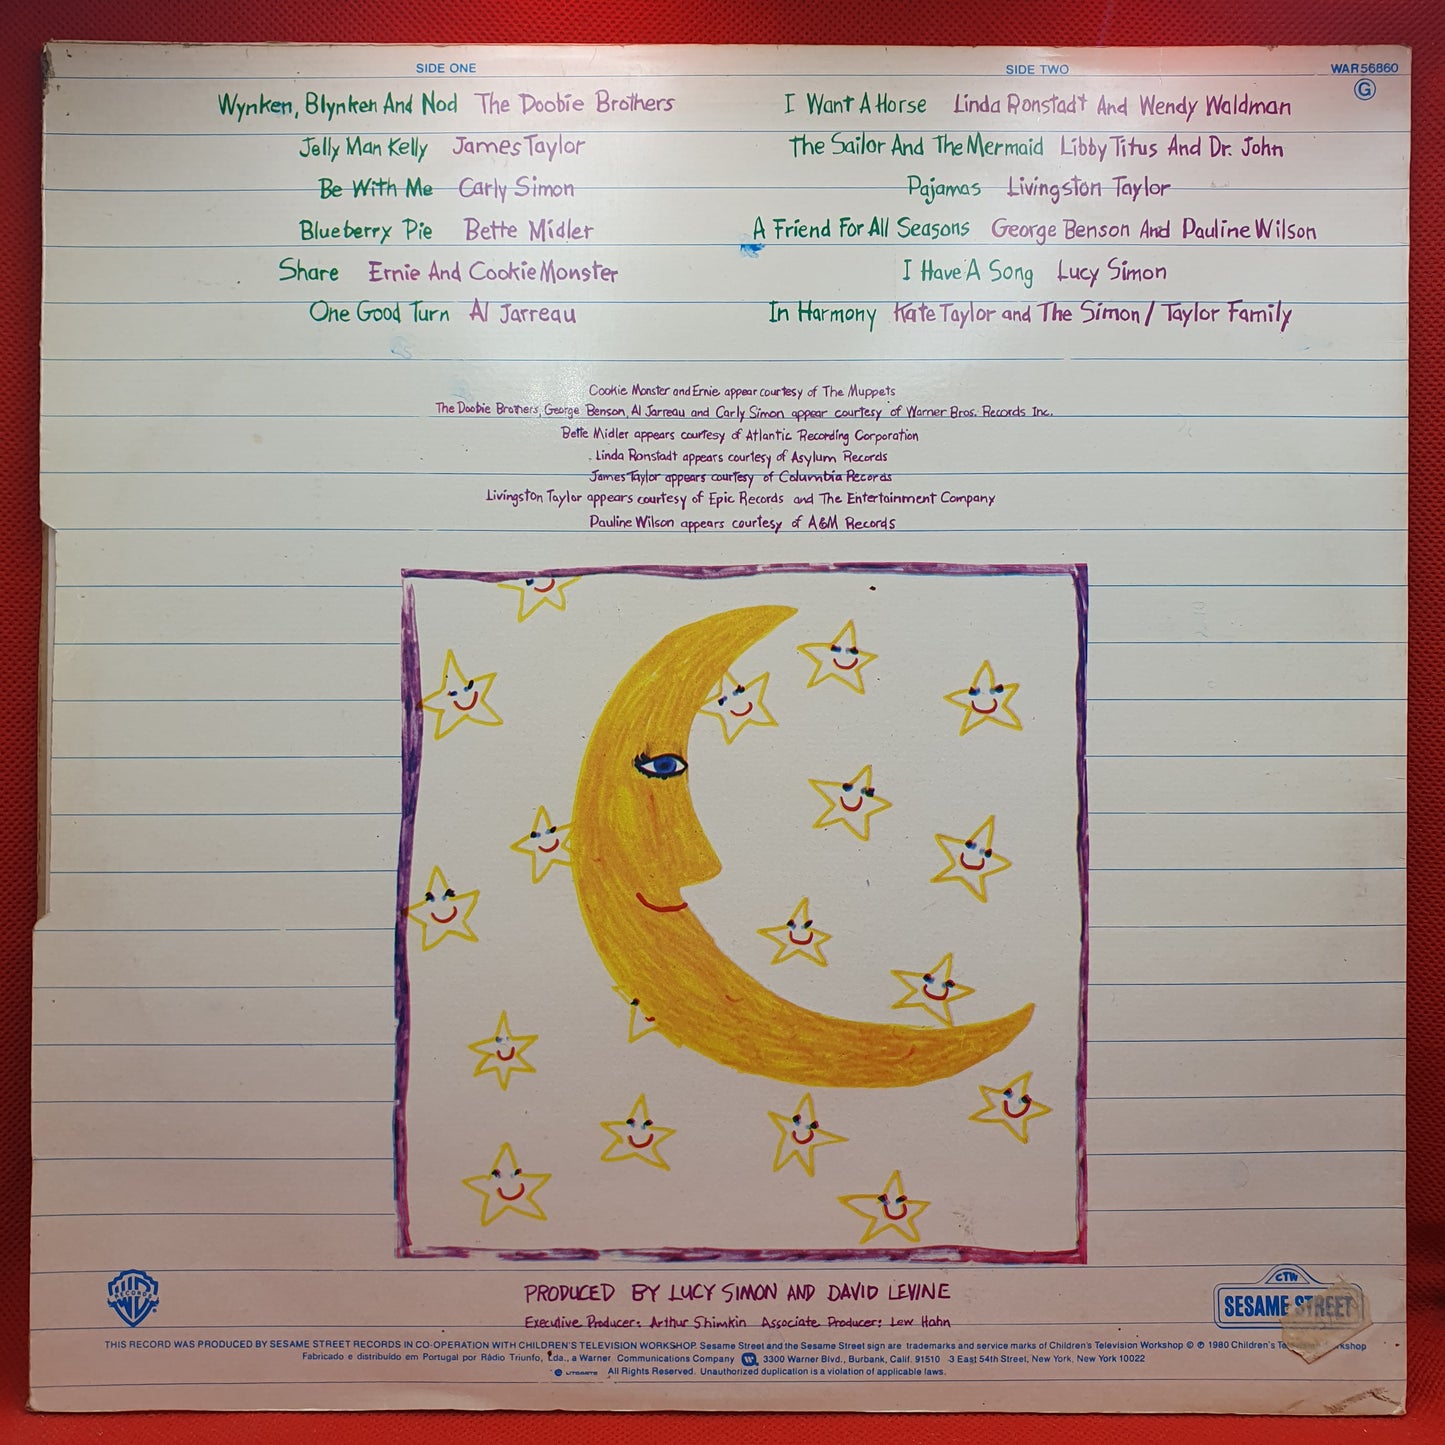 SIDE ONE
Wynken, Blynken And Nod The Doobie Brothers
Jelly Man Kelly James Taylor
Be With Me Carly Simon
Blueberry Pie Bette Midler
Share Ernie And Cookie Monster
One Good Turn Al Jarreau
SIDE TWO
I Want A Horse Linda Ronstadt And Wendy Waldman
The Sailor And The Mermaid Libby Titus And Dr. John
Pajamas Livingston Taylor
A Friend For All Seasons George Benson And Pauline Wilson
I Have A Song Lucy Simon
In Harmony Kate Taylor and The Simon/Taylor Family
WAR 56860
G
Cookie Monster and Ernie appear courtesy of The Muppets
The Doobie Brothers, George Benson, Al Jarreau and Carly Simon appear courtesy of Warner Bros. Records Inc.
Bette Midler appears courtesy of Atlantic Recording Corporation
Linda Ronstadt appears courtesy of Asylum Records
James Taylor appears courtesy of Columbia Records
Livingston Taylor appears courtesy of Epic Records and The Entertainment Company
Pauline Wilson appears courtesy of A&M Records
WB RECORDS
PRODUCED BY LUCY SIMON AND DAVID LEVINE
Executive Producer: Arthur Shimkin Associate Producer: Lew Hahn
CTW
SESAME STREET
THIS RECORD WAS PRODUCED BY SESAME STREET RECORDS IN CO-OPERATION WITH CHILDREN'S TELEVISION WORKSHOP. Sesame Street and the Sesame Street sign are trademarks and service marks of Children's Television Workshop © ℗ 1980 Children's
Fabricado e distribuído em Portugal por Rádio Triunfo, Lda., a Warner Communications Company 3300 Warner Blvd., Burbank, Calif. 91510 3 East 54th Street, New York, New York 10022
All Rights Reserved. Unauthorized duplication is a violation of applicable laws.